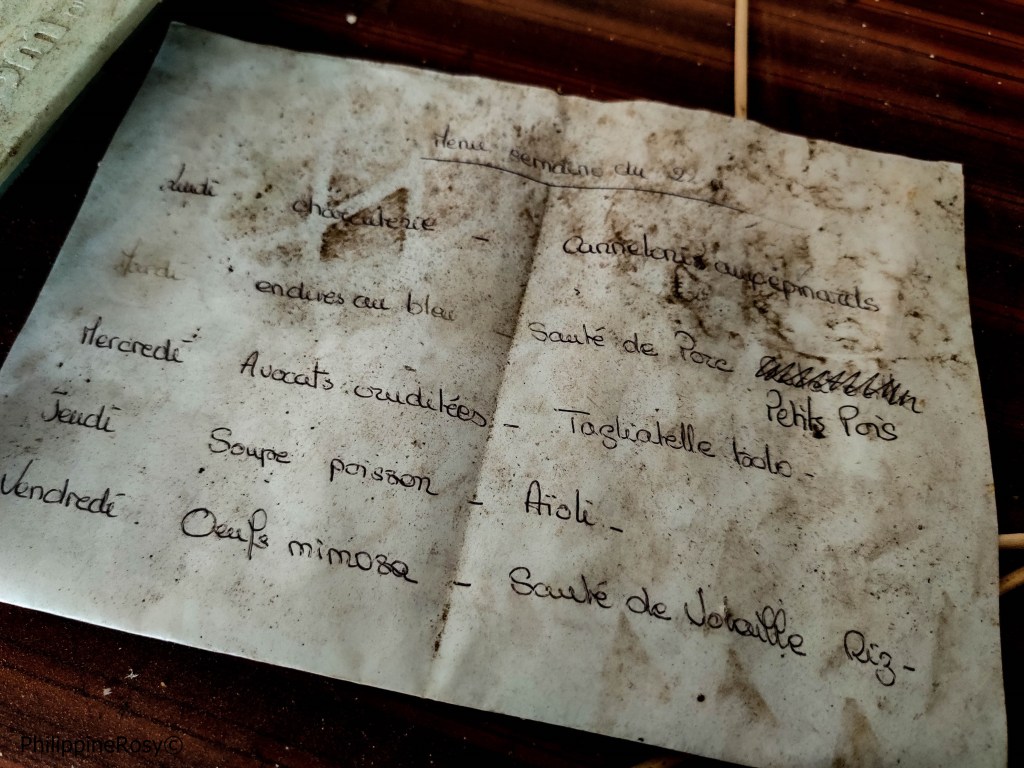 Menu semaine du 22
Lundi charcuterie - Cannelonis aux épinards
Mardi endives au bleu - Sauté de Porc
Petits Pois
Mercredi Avocats crudités - Tagliatelle bolo -
Jeudi Soupe poisson - Aïoli -
Vendredi Oeufs mimosa - Sauté de Volaille Riz -
PhilippineRosy©